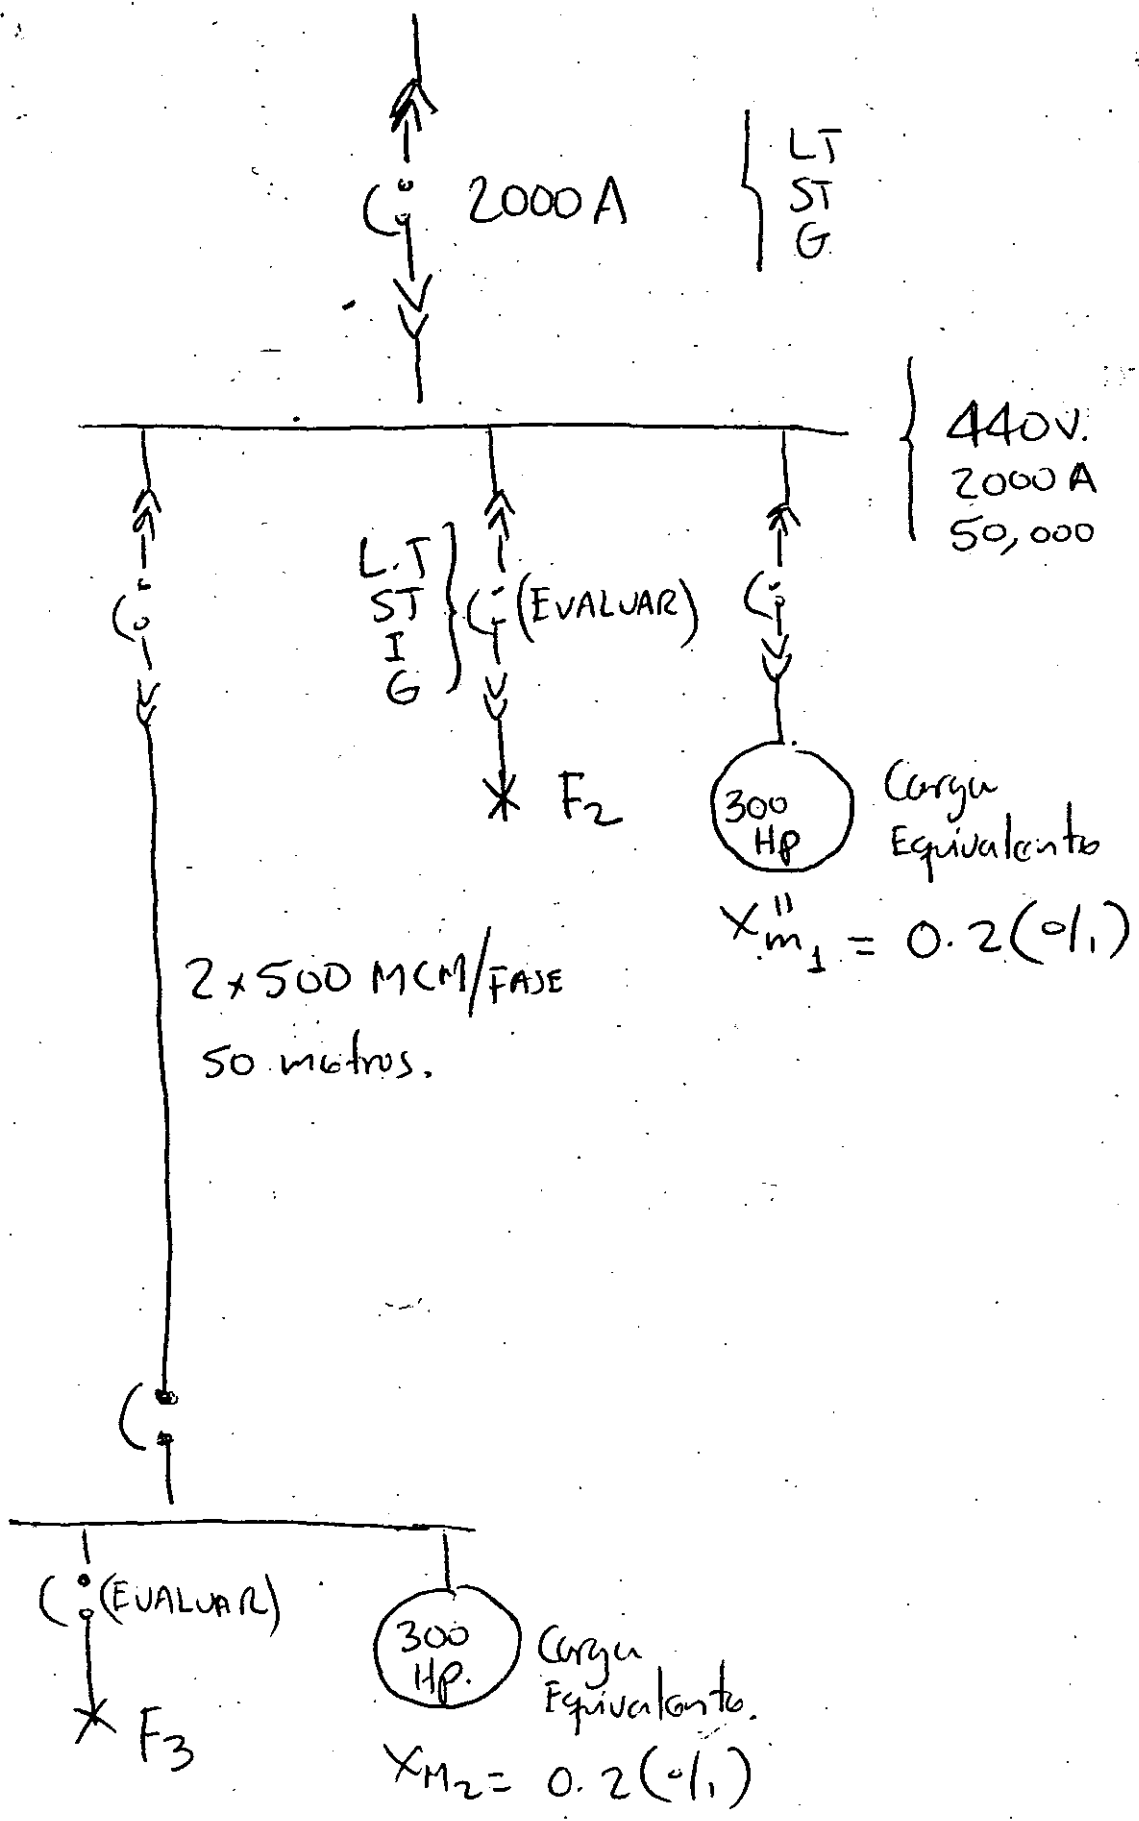 2000 A
LT
ST
G
440 V.
2000 A
50,000
L.T
ST
I
G
(EVALUAR)
F2
300
Hp
Carga
Equivalente
X"m1 = 0.2 (%1)
2x500 MCM/FASE
50 metros.
(EVALUAR)
F3
300
Hp.
Carga
Equivalente.
XM2 = 0.2 (%1)